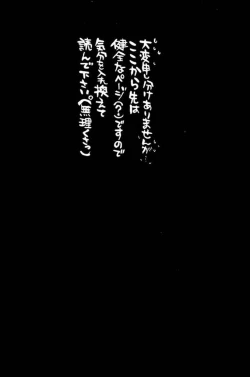 大変申し分けありませんが…
ここから先は
健全なページ(?)ですので
気分を入れ換えて
読んで下さい。(無理くさっ)